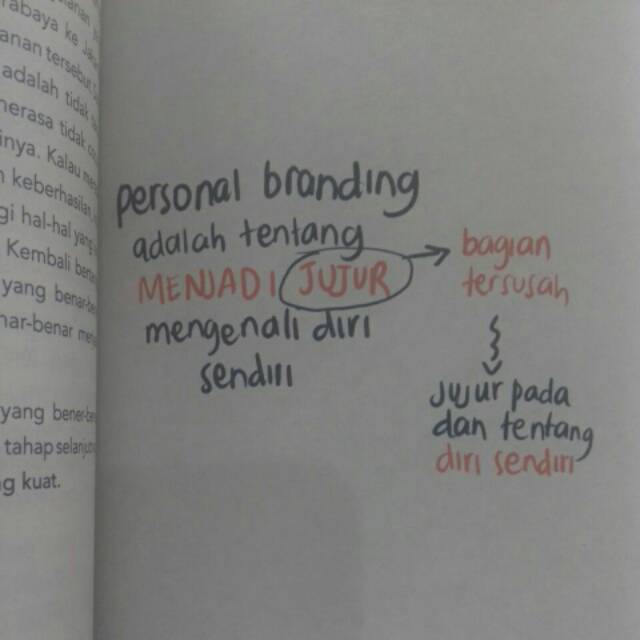 rabaya ke
anan terseb
adalah tidak
merasa tidak
inya. Kalau
keberhasilan
gi hal-hal yang
Kembali
yang benar-be
nar-benar
yang bener-be
tahap selanju
g kuat.
personal branding
adalah tentang
MENJADI JUJUR
mengenali diri
sendiri
bagian
tersusah
jujur pada
dan tentang
diri sendiri